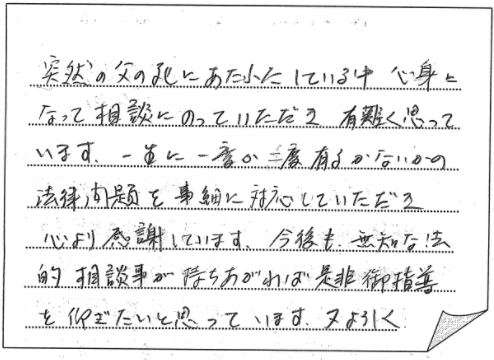 突然の父の死にあたふたしている中 心身に
なって相談にのっていただき 有難く思って
います、一生に一度か二度有るかないかの
法律問題を事細に対応していただき
心より感謝しています、今後も、無知な法
的相談事が持ちあがれば是非御指導
を仰ぎたいと思っています、又よろしく